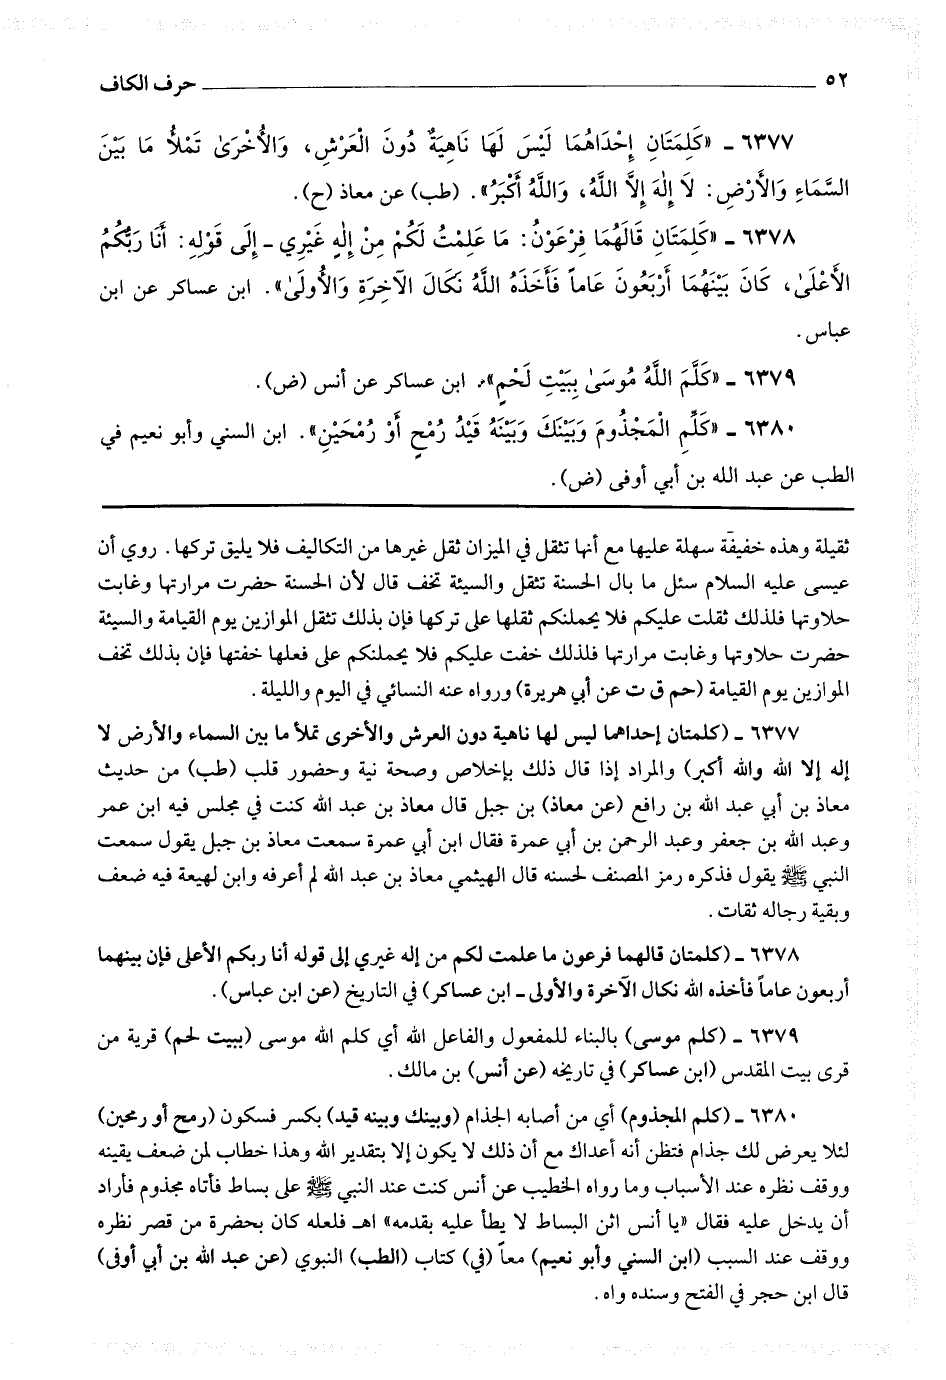 ٥٢ حرف الكاف
٦٣٧٧ ـ «كَلِمَتَانِ إِحْدَاهُمَا لَيْسَ لَهَا نَاهِيَةٌ دُونَ الْعَرْشِ، وَالْأُخْرَىٰ تَمْلَأُ مَا بَيْنَ
السَّمَاءِ وَالْأَرْضِ: لَا إِلٰهَ إِلَّا اللَّهُ، وَاللَّهُ أَكْبَرُ». (طب) عن معاذ (ح).
٦٣٧٨ ـ «كَلِمَتَانِ قَالَهُمَا فِرْعَوْنُ: مَا عَلِمْتُ لَكُمْ مِنْ إِلٰهٍ غَيْرِي ـ إِلَى قَوْلِهِ: أَنَا رَبُّكُمُ
الْأَعْلَىٰ، كَانَ بَيْنَهُمَا أَرْبَعُونَ عَاماً فَأَخَذَهُ اللَّهُ نَكَالَ الْآخِرَةِ وَالْأُولَىٰ». ابن عساكر عن ابن
عباس.
٦٣٧٩ ـ «كَلَّمَ اللَّهُ مُوسَىٰ بِبَيْتِ لَحْمٍ». ابن عساكر عن أنس (ض).
٦٣٨٠ ـ «كَلِّمِ الْمَجْذُومَ وَبَيْنَكَ وَبَيْنَهُ قَيْدُ رُمْحٍ أَوْ رُمْحَيْنِ». ابن السني وأبو نعيم في
الطب عن عبد الله بن أبي أوفى (ض).
ثقيلة وهذه خفيفة سهلة عليها مع أنها تثقل في الميزان ثقل غيرها من التكاليف فلا يليق تركها. روي أن
عيسى عليه السلام سئل ما بال الحسنة تثقل والسيئة تخف قال لأن الحسنة حضرت مرارتها وغابت
حلاوتها فلذلك ثقلت عليكم فلا يحملنكم ثقلها على تركها فإن بذلك تثقل الموازين يوم القيامة والسيئة
حضرت حلاوتها وغابت مرارتها فلذلك خفت عليكم فلا يحملنكم على فعلها خفتها فإن بذلك تخف
الموازين يوم القيامة (حم ق ت عن أبي هريرة) ورواه عنه النسائي في اليوم والليلة.
٦٣٧٧ ـ (كلمتان إحداهما ليس لها ناهية دون العرش والأخرى تملأ ما بين السماء والأرض لا
إله إلا الله والله أكبر) والمراد إذا قال ذلك بإخلاص وصحة نية وحضور قلب (طب) من حديث
معاذ بن أبي عبد الله بن رافع (عن معاذ) بن جبل قال معاذ بن عبد الله كنت في مجلس فيه ابن عمر
وعبد الله بن جعفر وعبد الرحمن بن أبي عمرة فقال ابن أبي عمرة سمعت معاذ بن جبل يقول سمعت
النبي ﷺ يقول فذكره رمز المصنف لحسنه قال الهيثمي معاذ بن عبد الله لم أعرفه وابن لهيعة فيه ضعف
وبقية رجاله ثقات.
٦٣٧٨ ـ (كلمتان قالهما فرعون ما علمت لكم من إله غيري إلى قوله أنا ربكم الأعلى فإن بينهما
أربعون عاماً فأخذه الله نكال الآخرة والأولى ـ ابن عساكر) في التاريخ (عن ابن عباس).
٦٣٧٩ ـ (كلم موسى) بالبناء للمفعول والفاعل الله أي كلم الله موسى (ببيت لحم) قرية من
قرى بيت المقدس (ابن عساكر) في تاريخه (عن أنس) بن مالك.
٦٣٨٠ ـ (كلم المجذوم) أي من أصابه الجذام (وبينك وبينه قيد) بكسر فسكون (رمح أو رمحين)
لئلا يعرض لك جذام فتظن أنه أعداك مع أن ذلك لا يكون إلا بتقدير الله وهذا خطاب لمن ضعف يقينه
ووقف نظره عند الأسباب وما رواه الخطيب عن أنس كنت عند النبي ﷺ على بساط فأتاه مجذوم فأراد
أن يدخل عليه فقال «يا أنس اثن البساط لا يطأ عليه بقدمه» اهـ فلعله كان بحضرة من قصر نظره
ووقف عند السبب (ابن السني وأبو نعيم) معاً (في) كتاب (الطب) النبوي (عن عبد الله بن أبي أوفى)
قال ابن حجر في الفتح وسنده واه.